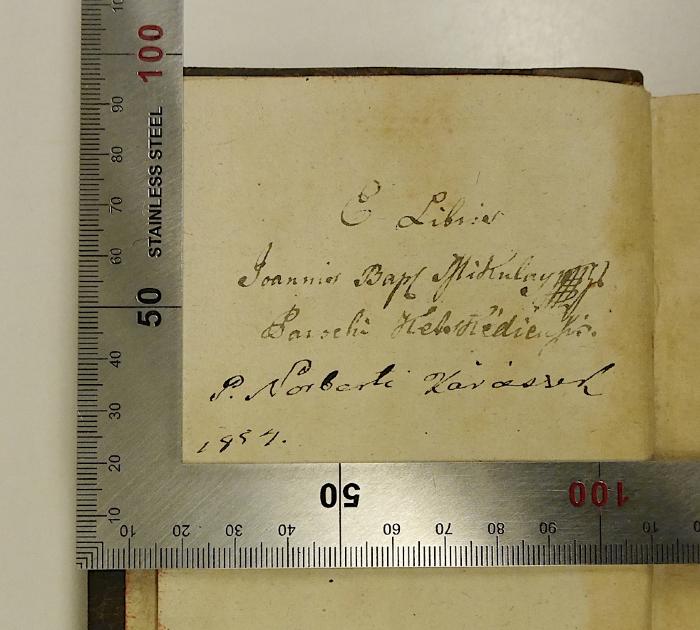 E Libris
Joannis Bapt Mikulay
Parochi
P. Norberti Kárászek
1854.
STAINLESS STEEL
10 100 90 80 70 60 50 40 30 20 10
10 20 30 40 50 60 70 80 90 100 10